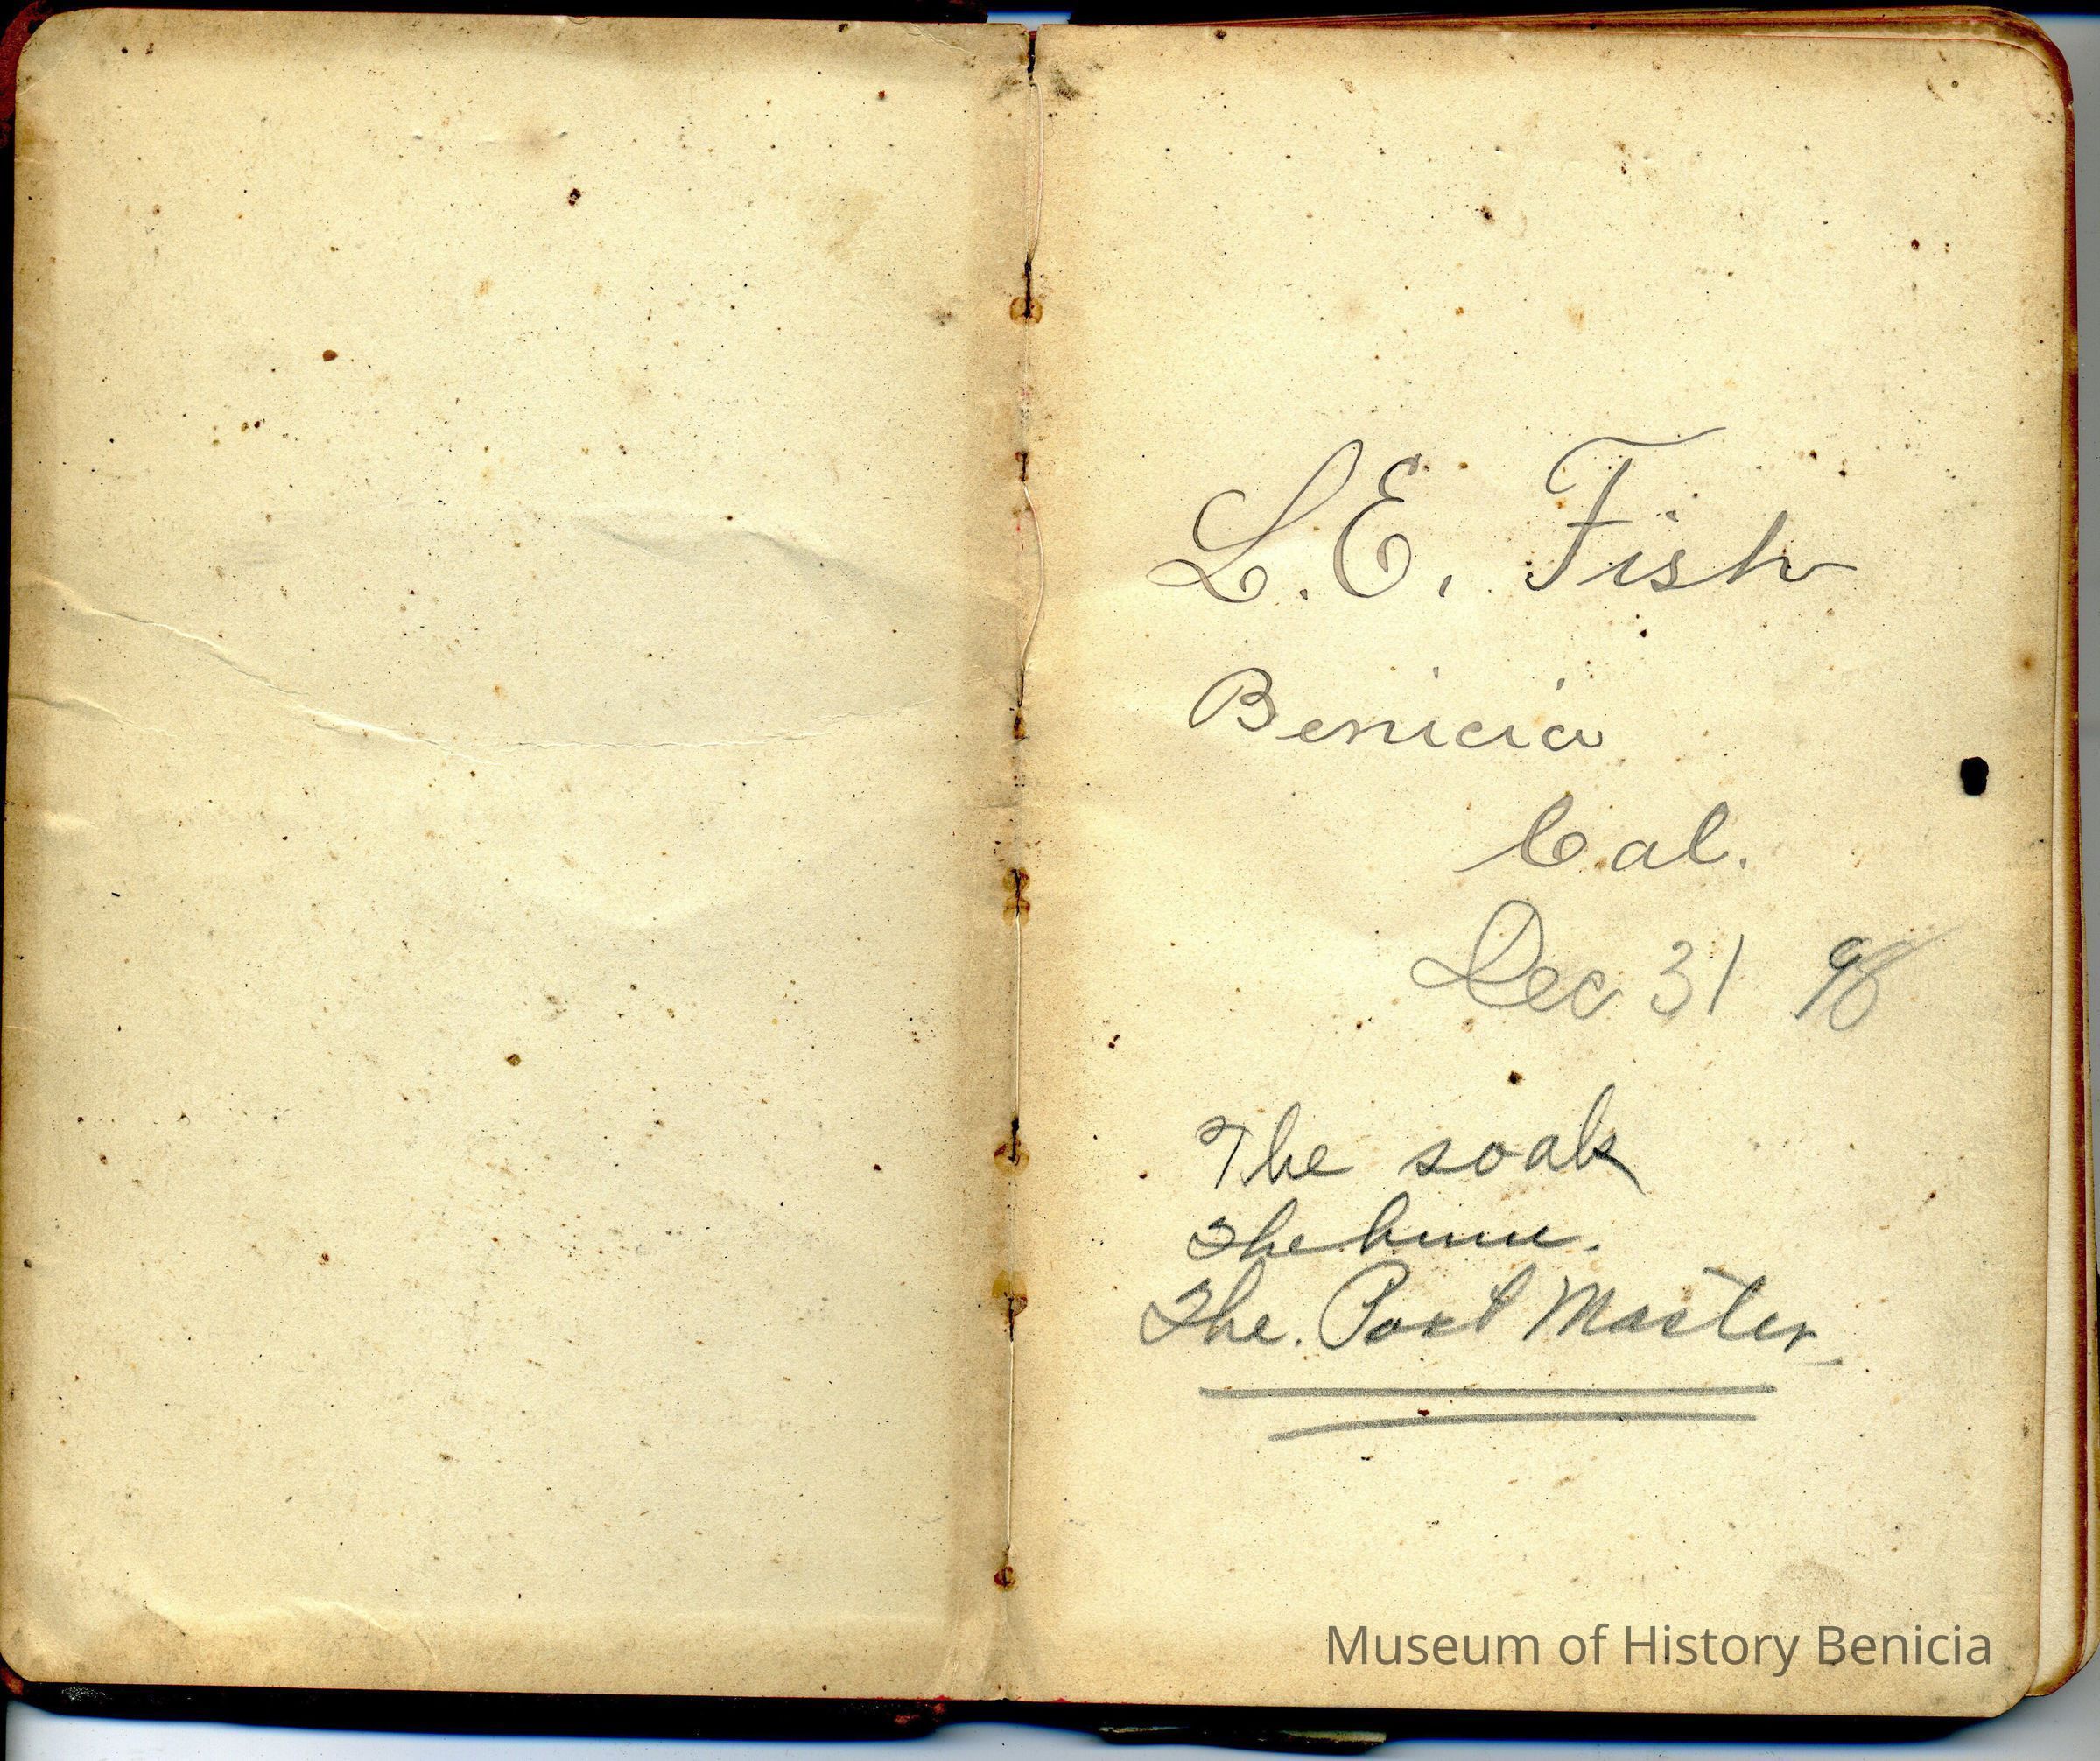 L. E. Fish
Benicia
Cal.
Dec 31 98
The soak
The
The. Post Master
Museum of History Benicia